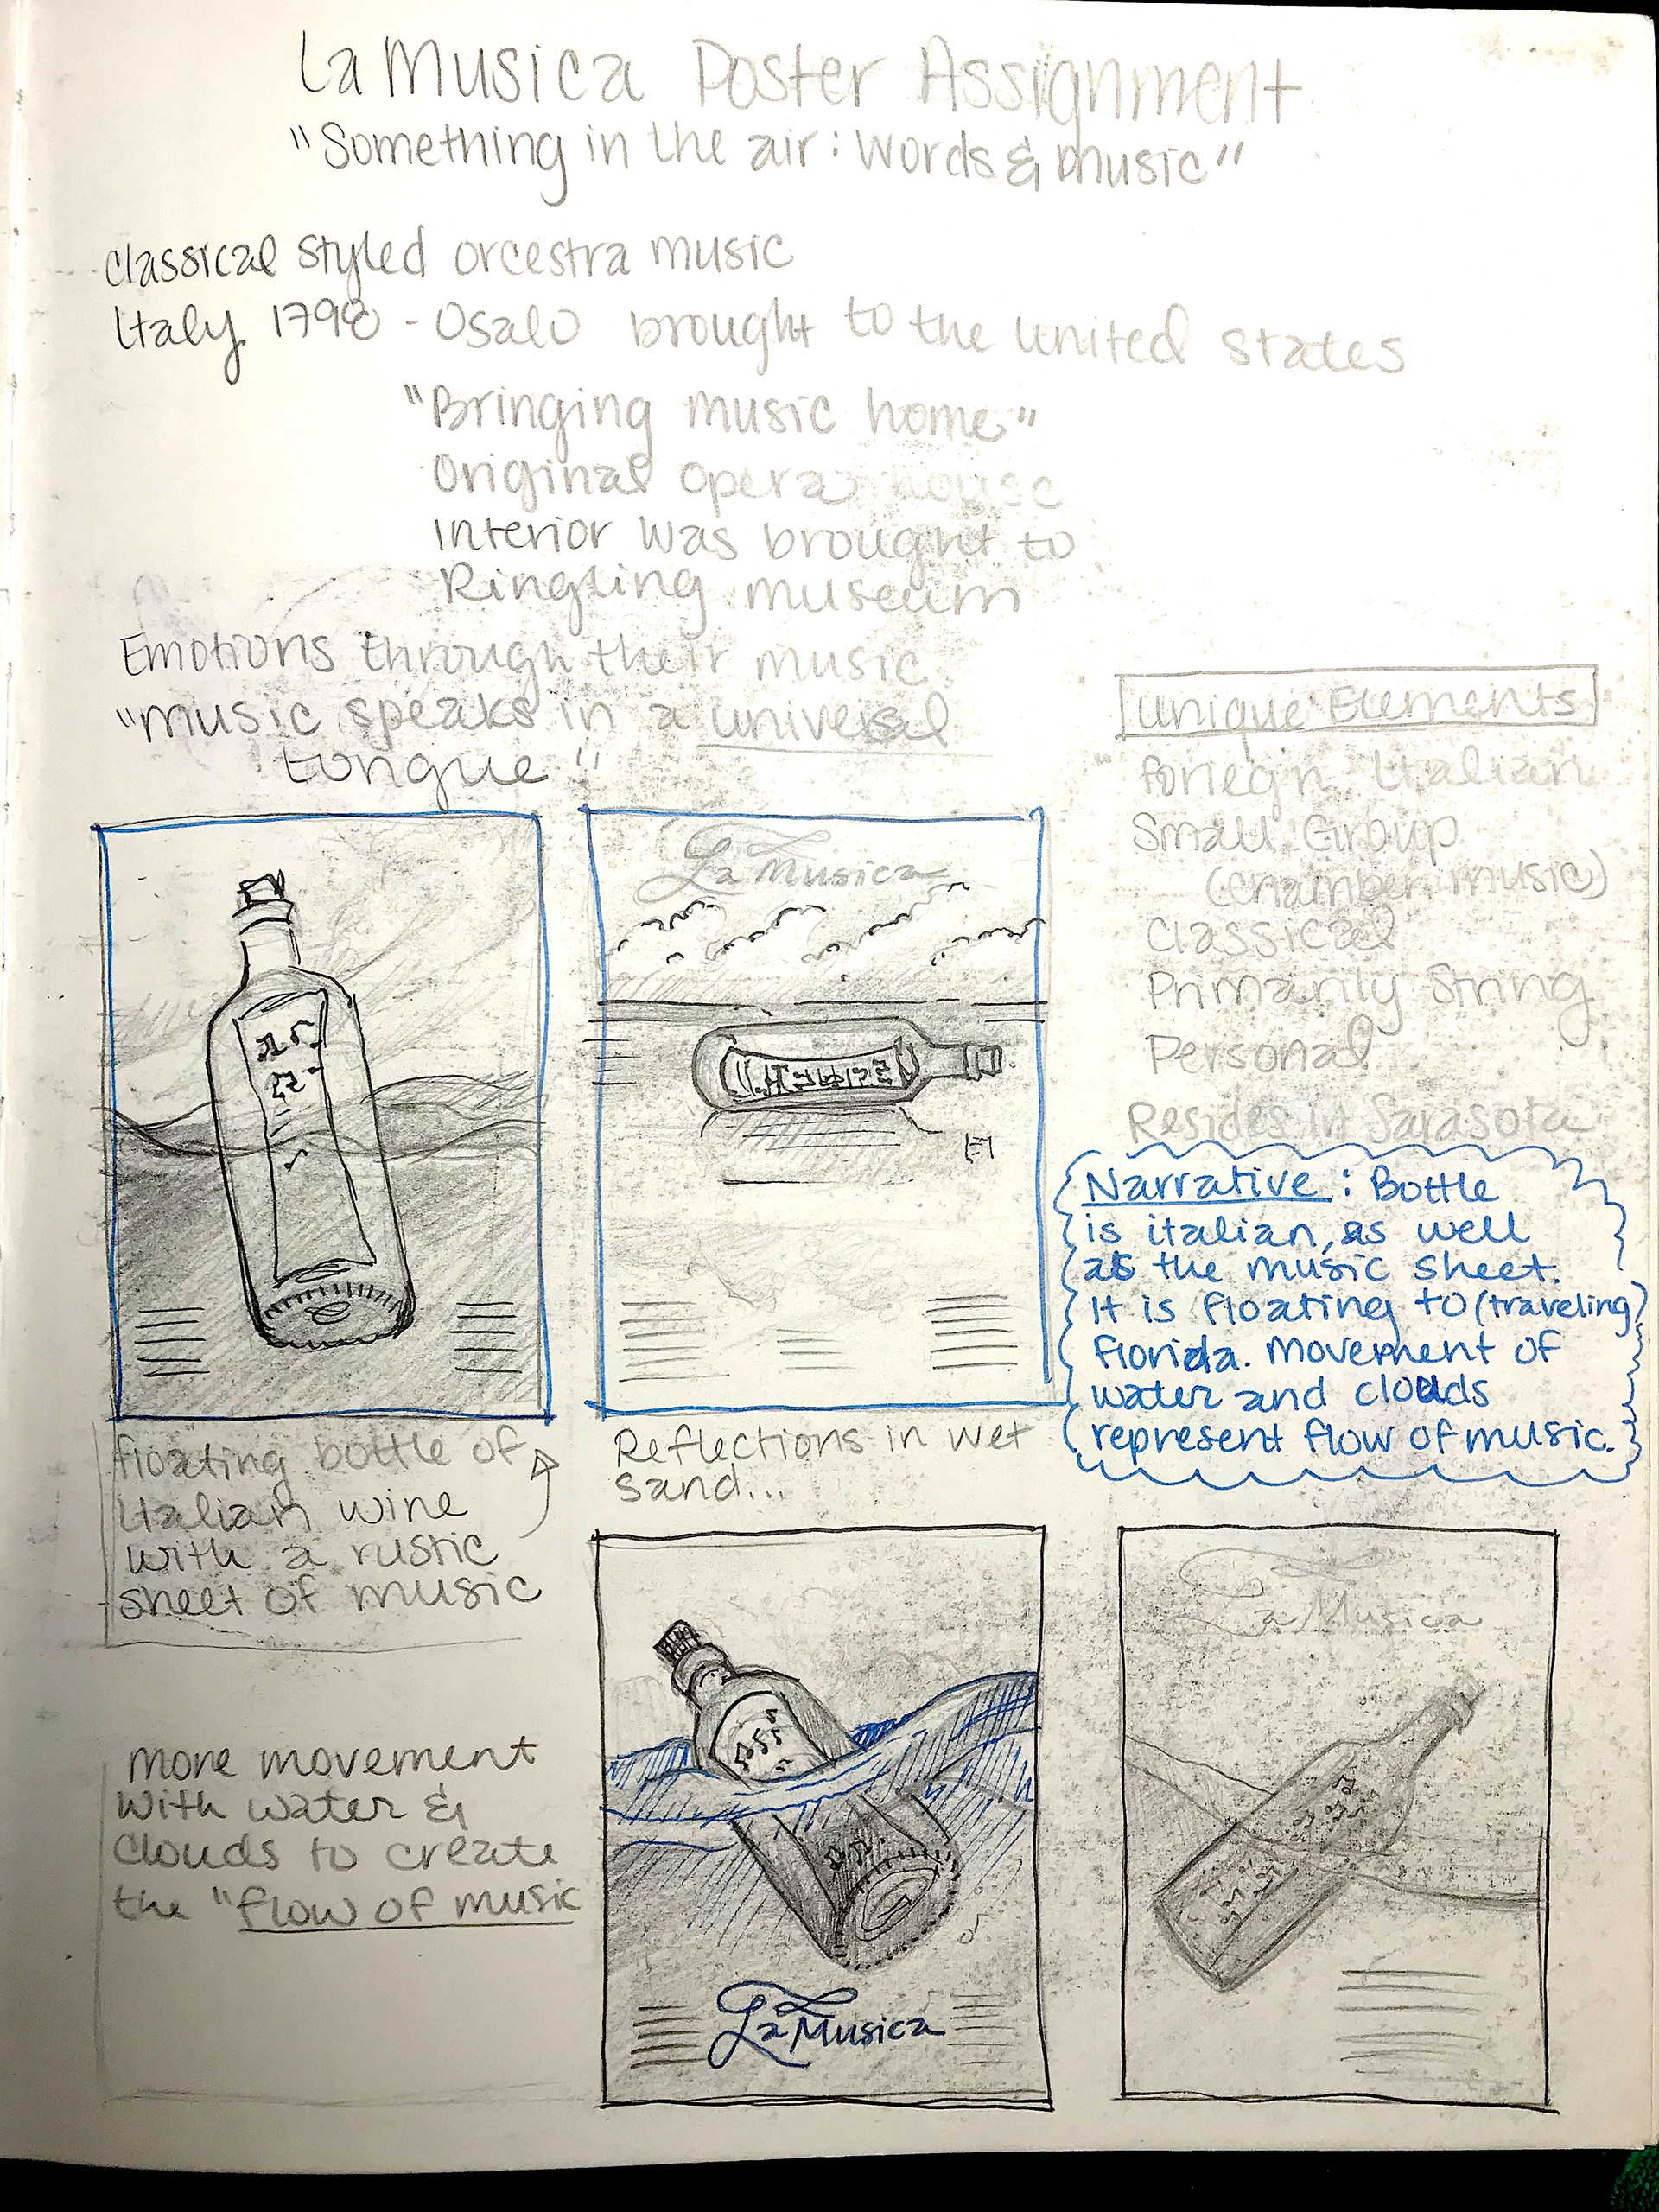 La Musica Poster Assignment
"Something in the air: Words & Music"
Classical styled orcestra music
Italy 1798 - Osalo brought to the United States
"Bringing music home"
Original opera house
Interior was brought to
Ringling museum
Emotions through their music
"music speaks in a universal
tongue"
Unique Elements
foriegn Italian
Small Group
(chamber music)
Classical
Primarily String
Personal
Resides in Sarasota
La Musica
Narrative: Bottle
is italian, as well
as the music sheet.
It is floating to (traveling)
florida. Movement of
water and clouds
represent flow of music.
floating bottle of
Italian wine
with a rustic
sheet of music
Reflections in wet
sand...
more movement
with water &
clouds to create
the "flow of music
La Musica
La Musica